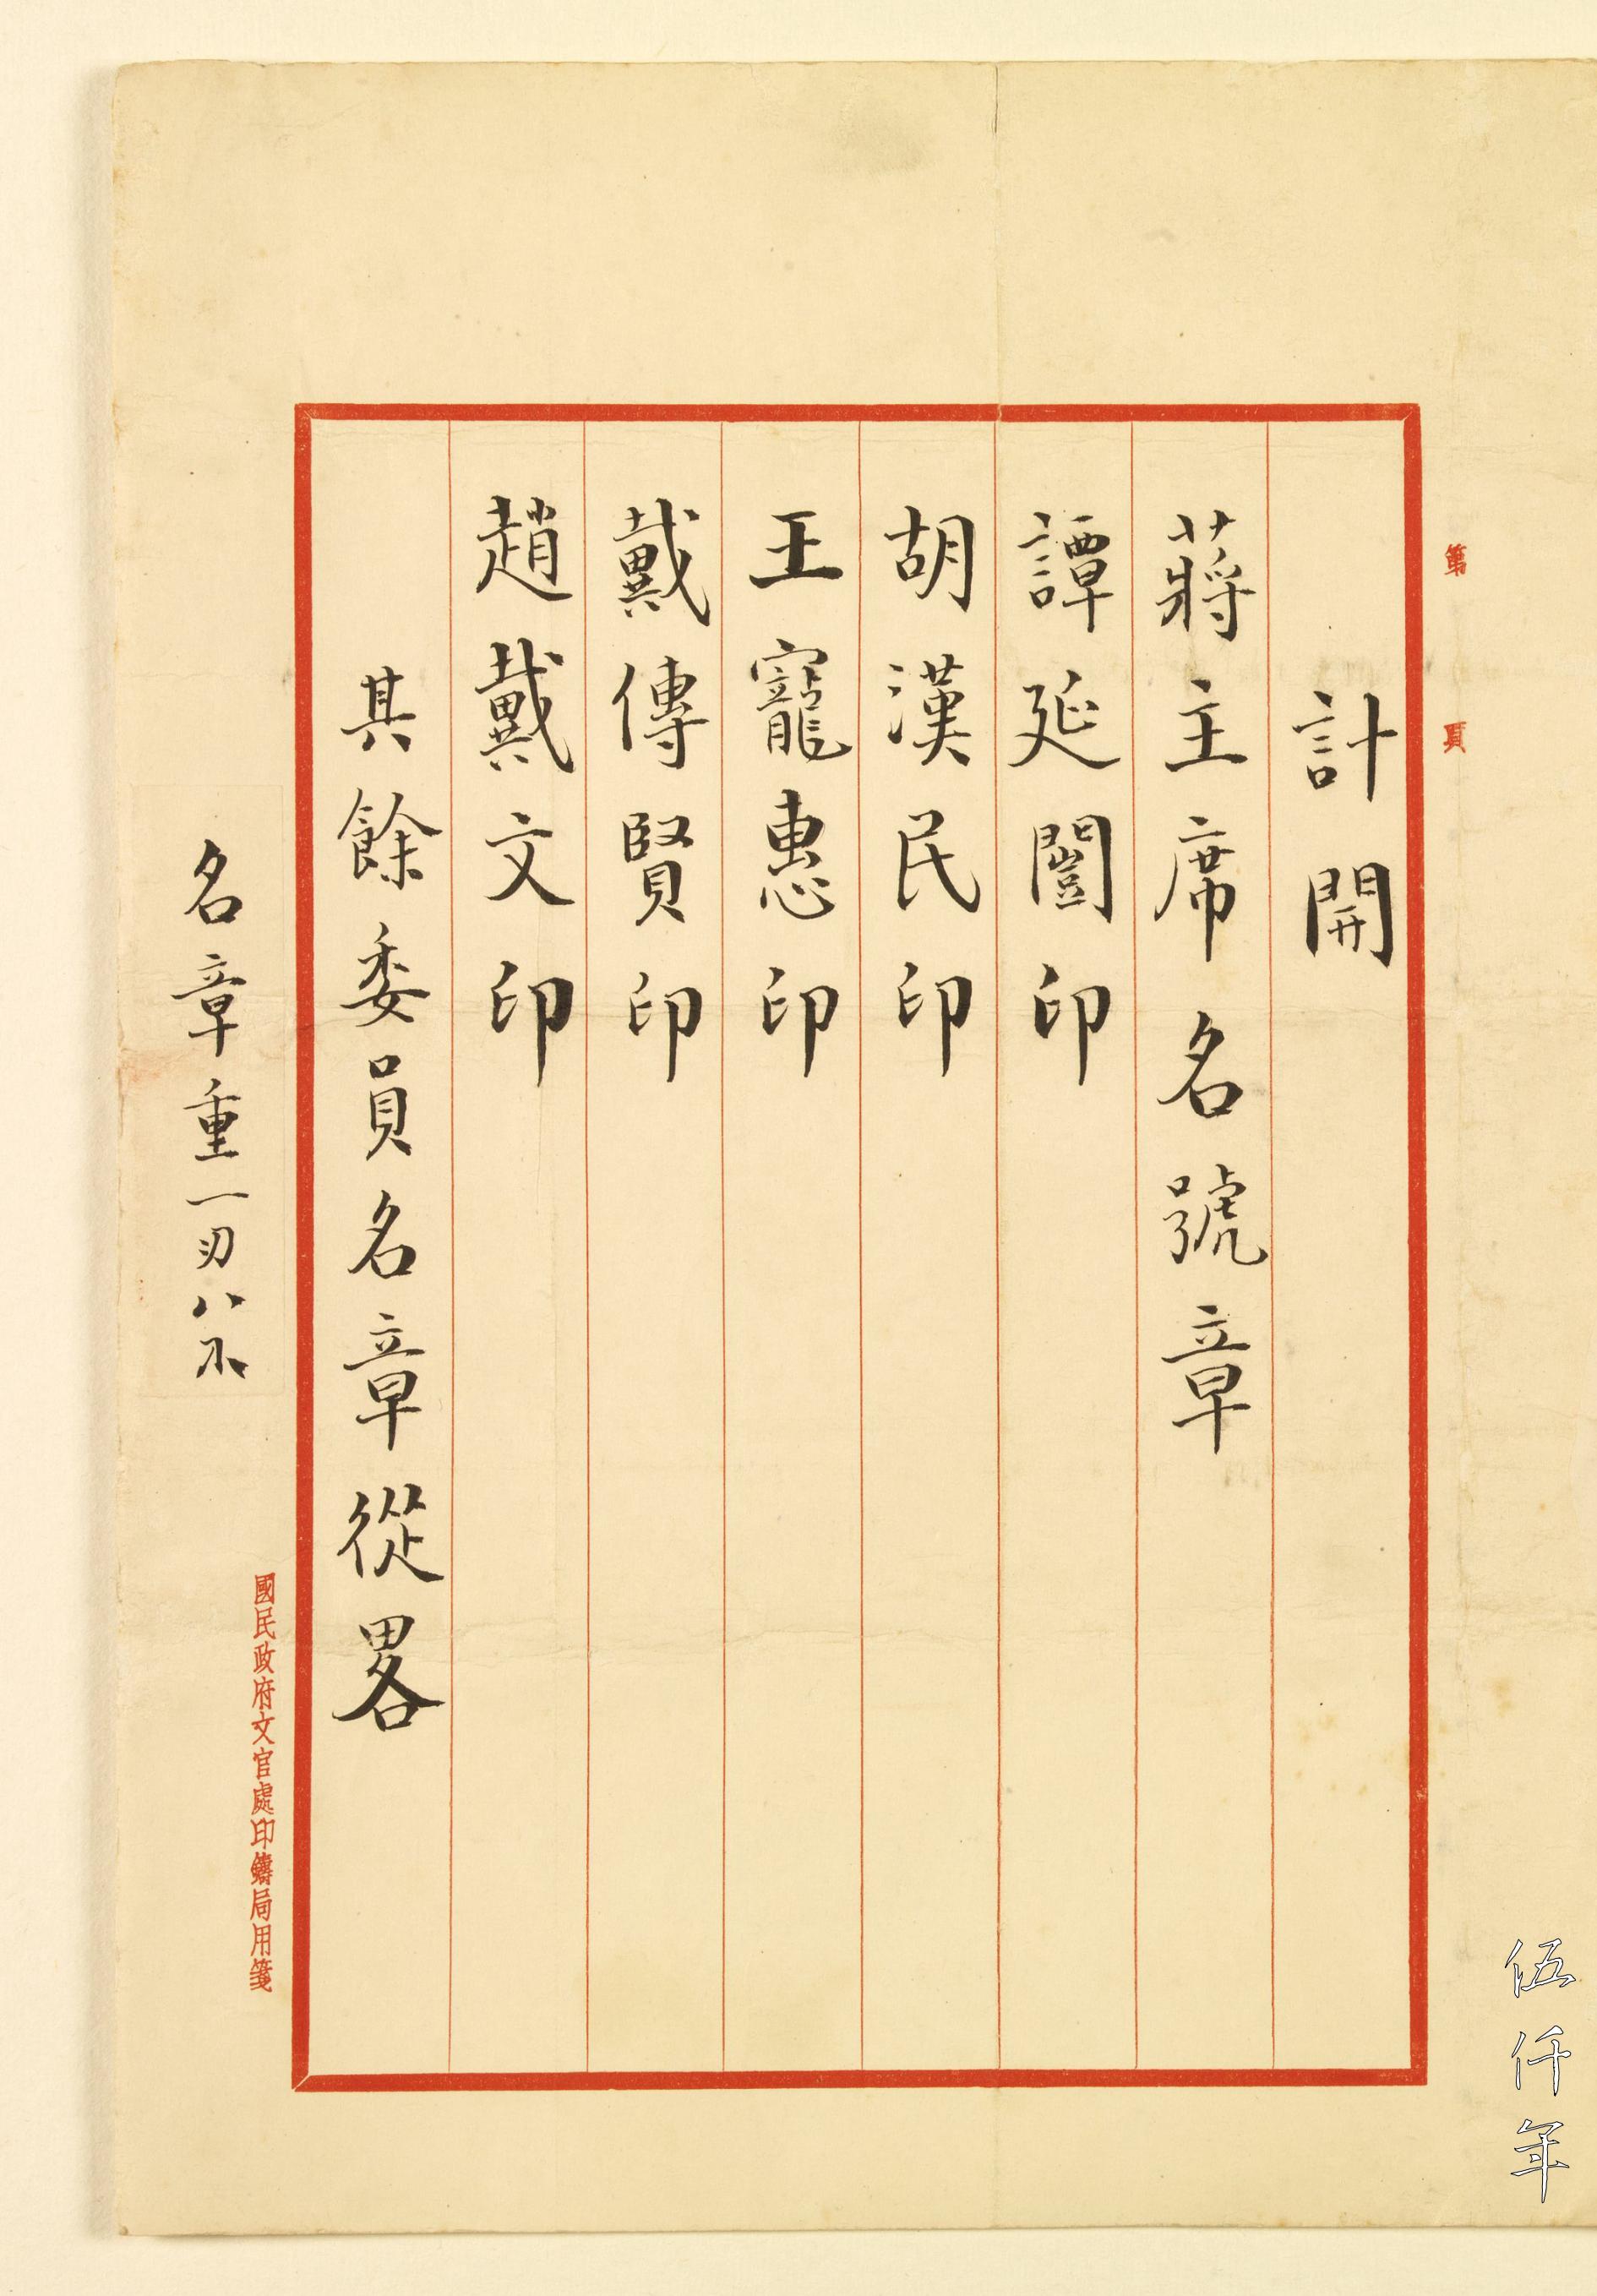 第 頁
計開
蔣主席名號章
譚延闓印
胡漢民印
王寵惠印
戴傳賢印
趙戴文印
其餘委員名章從畧
國民政府文官處印鑄局用箋
名章重一八
伍仟年